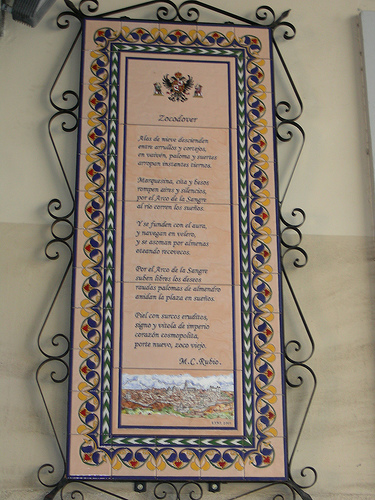 Zocodover
Alas de nieve descienden
entre arrullos y cortejos,
en vaivén, paloma y suertes
arropan instantes viernes.
Marquesina, cita y besos
rompen aires y silencios,
por el Arco de la Sangre
al río corren los sueños.
Y se funden con el aura,
y navegan en velero,
y se asoman por almenas
oteando recovecos.
Por el Arco de la Sangre
suben libres los deseos
raudas palomas de almendro
anidan la plaza en sueños.
Piel con surcos eruditos,
signo y vitola de imperio
corazón cosmopolita,
porte nuevo, zoco viejo.
M.C.Rubio.